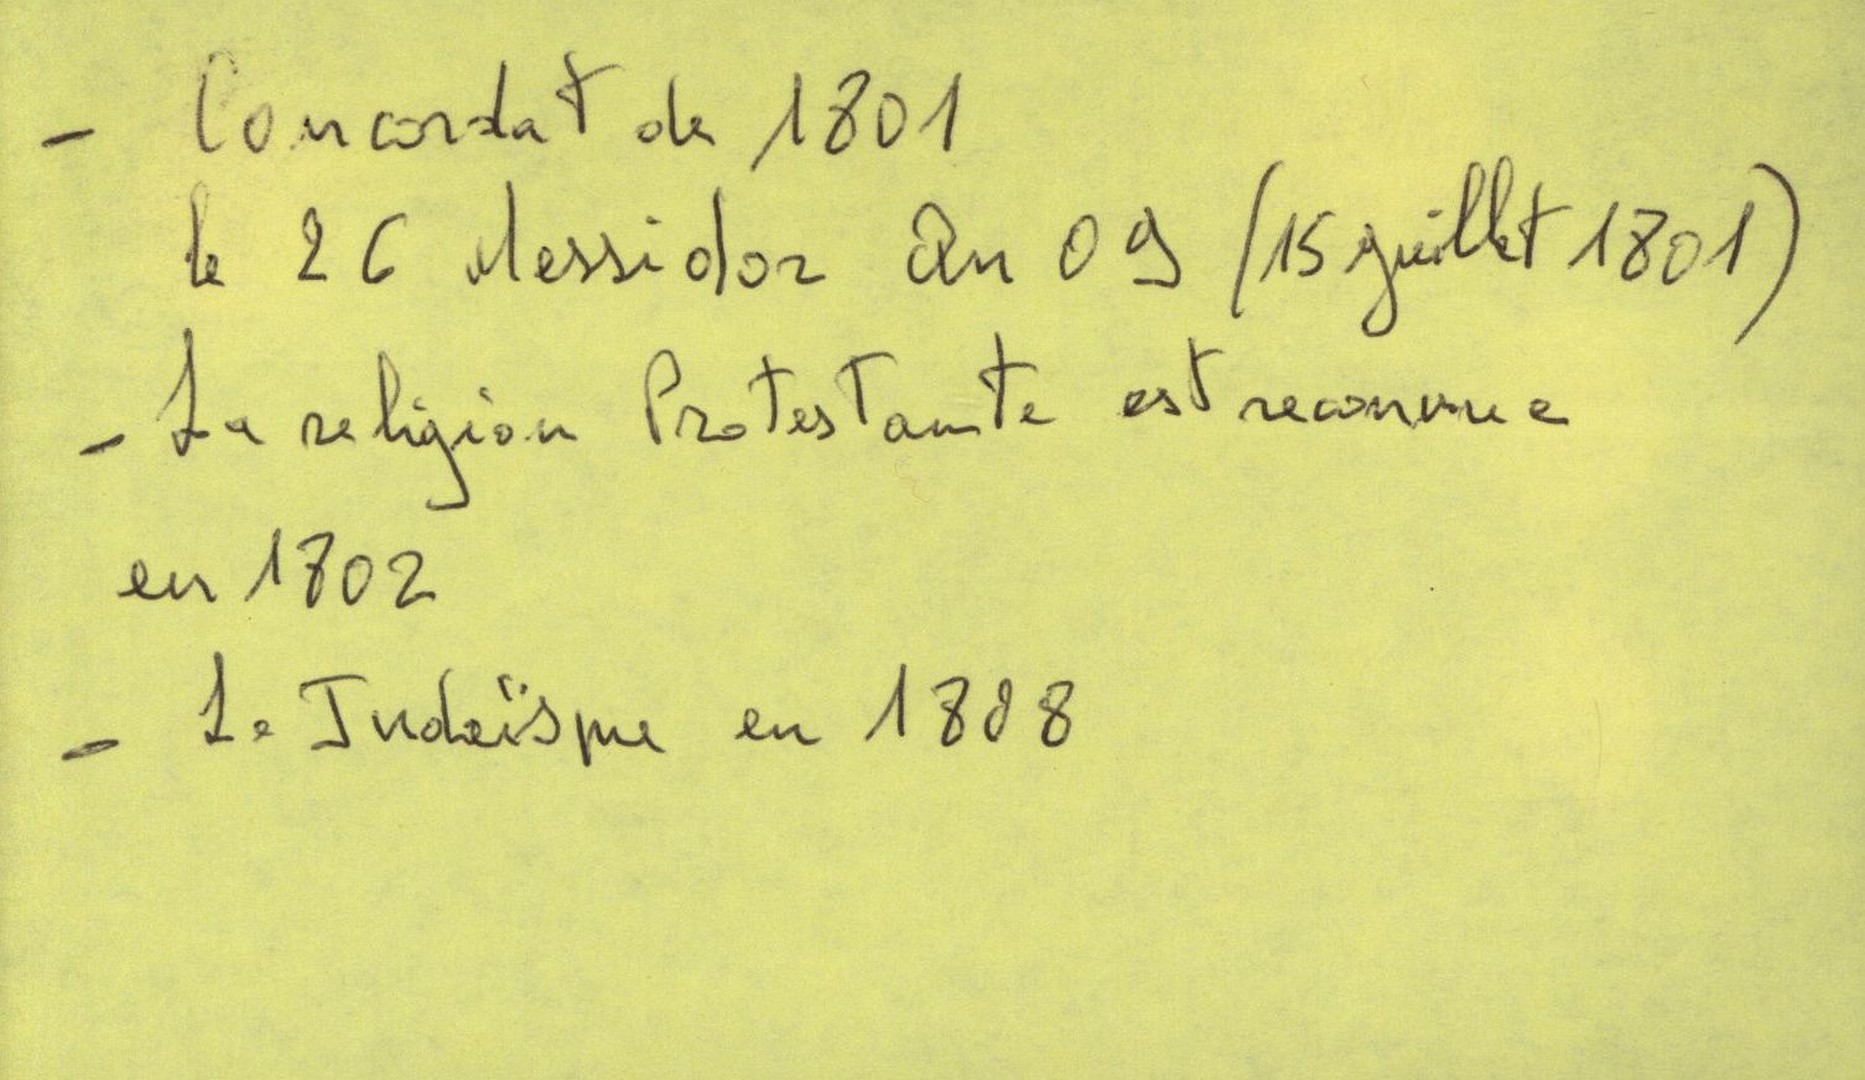 - Concordat de 1801
le 26 Messidor An 09 (15 juillet 1801)
- La religion Protestante est reconnue
en 1802
- Le Judaïsme en 1808